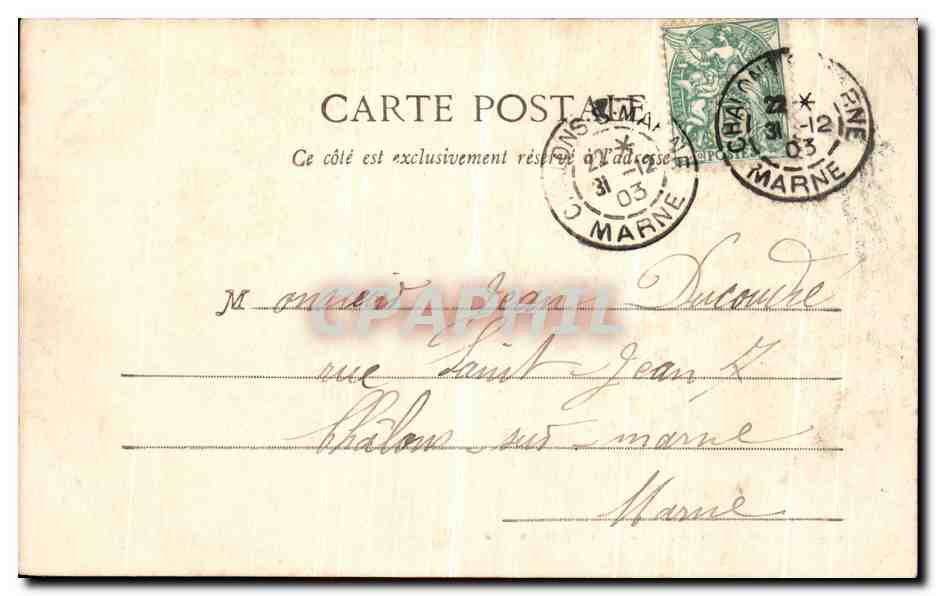 CARTE POSTALE
Ce côté est exclusivement réservé à l'adresse
CHALONS-S-MARNE
22 *
31 -12
03
MARNE
CHALONS-S-MARNE
22 *
31 -12
03
MARNE
POSTES
Monsieur Jean Ducoudré
CPAPHIL
rue Saint-Jean 7
Châlons-sur-marne
Marne